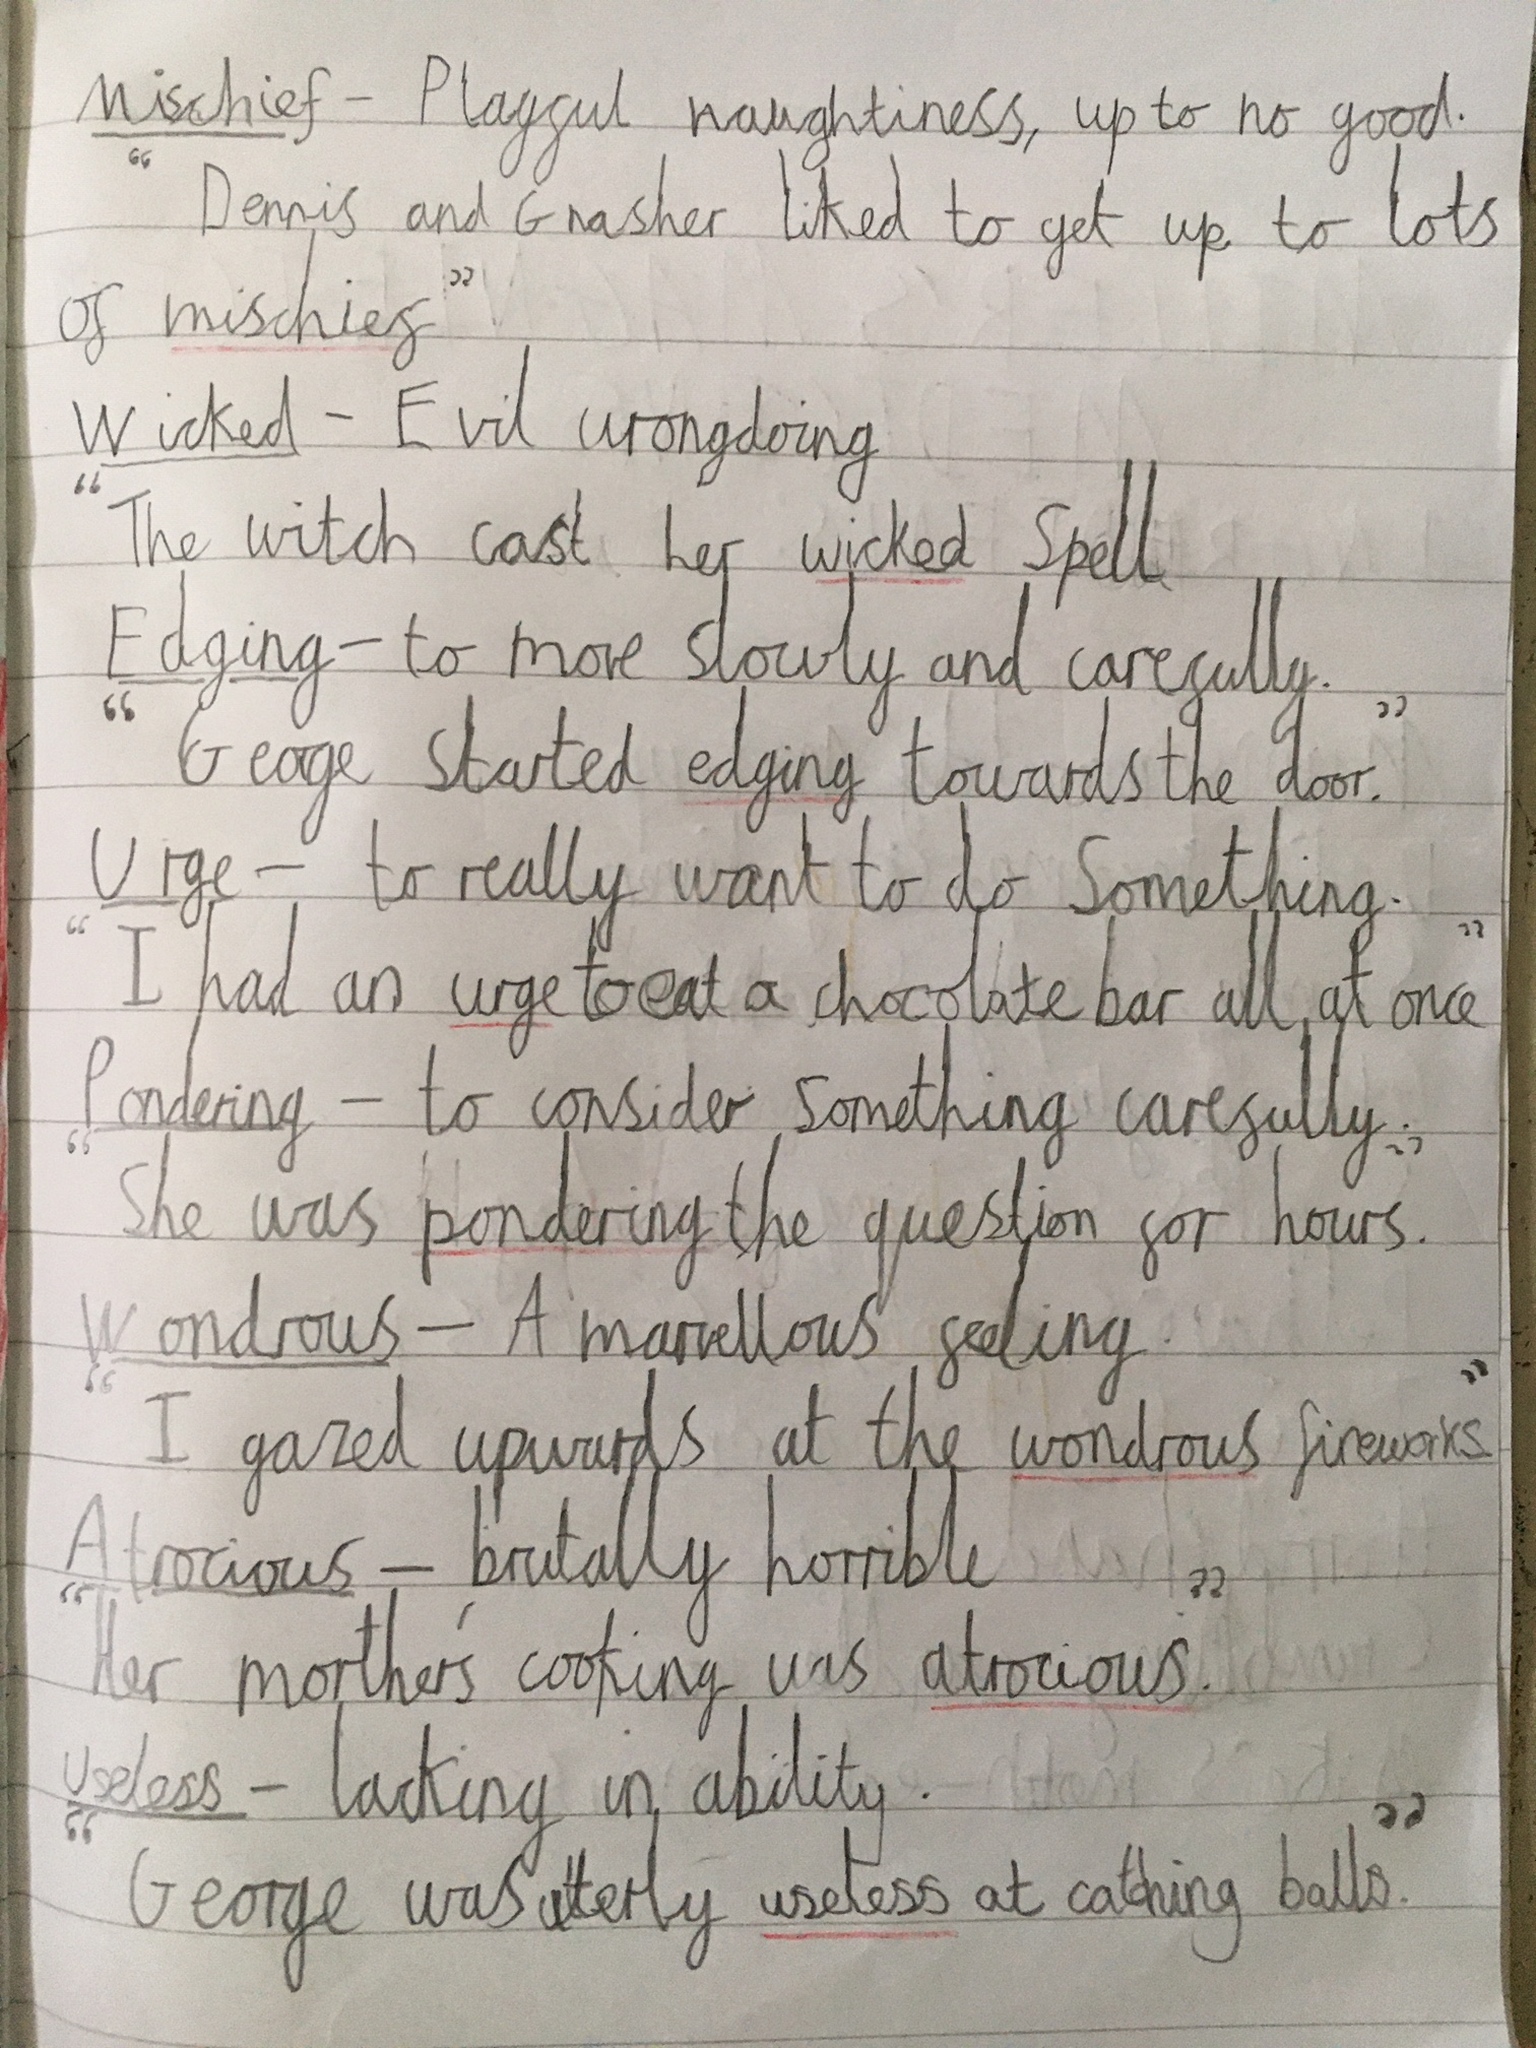 Mischief - Playful naughtiness, up to no good.
“ Dennis and Gnasher liked to get up to lots
of mischief”
Wicked - Evil wrongdoing
“The witch cast her wicked Spell
Edging - to move slowly and carefully.
“ George started edging towards the door.”
Urge - to really want to do Something.
“I had an urge to eat a chocolate bar all at once”
Pondering - to consider Something carefully.
“She was pondering the question for hours.”
Wondrous - A marvellous feeling.
“ I gazed upwards at the wondrous fireworks”
Atrocious - brutally horrible
“Her morther's cooking was atrocious.”
Useless - lacking in ability.
“ George was utterly useless at catching balls.”